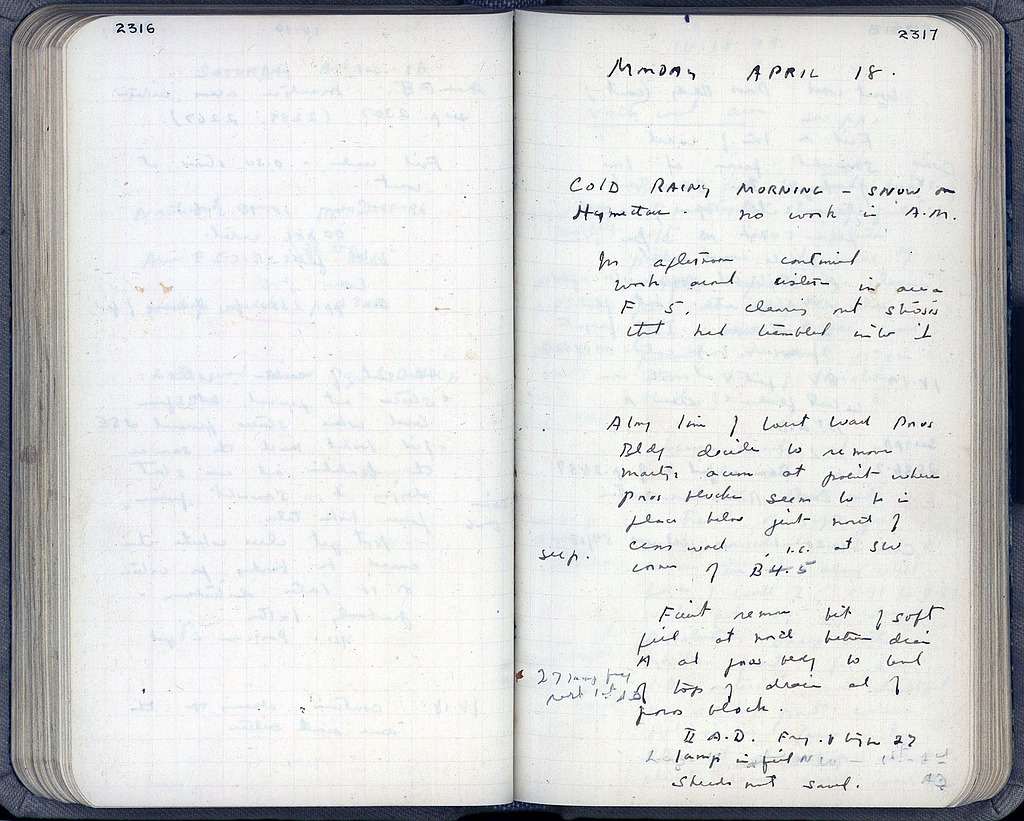 2316
2317
MONDAY APRIL 18.
COLD RAINY MORNING - SNOW on
Hymettus. no work in A.M.
In afternoon continued
work around cistern in area
F 5, clearing out stones
that had tumbled into it
Along line of west wall Poros
Bldg decide to remove
at point where
poros blocks seem to be in
place below just north of
cross wall, i.e. at SW
seep.
corner of B 4.5
First remove bit of soft
fill at north between drain
A and poros bldg to level
of top of drain and of
poros block.
27 lamp frag
post 1st AD
II A.D. Frag. of type 27
lamp in fill
Sherds not saved.